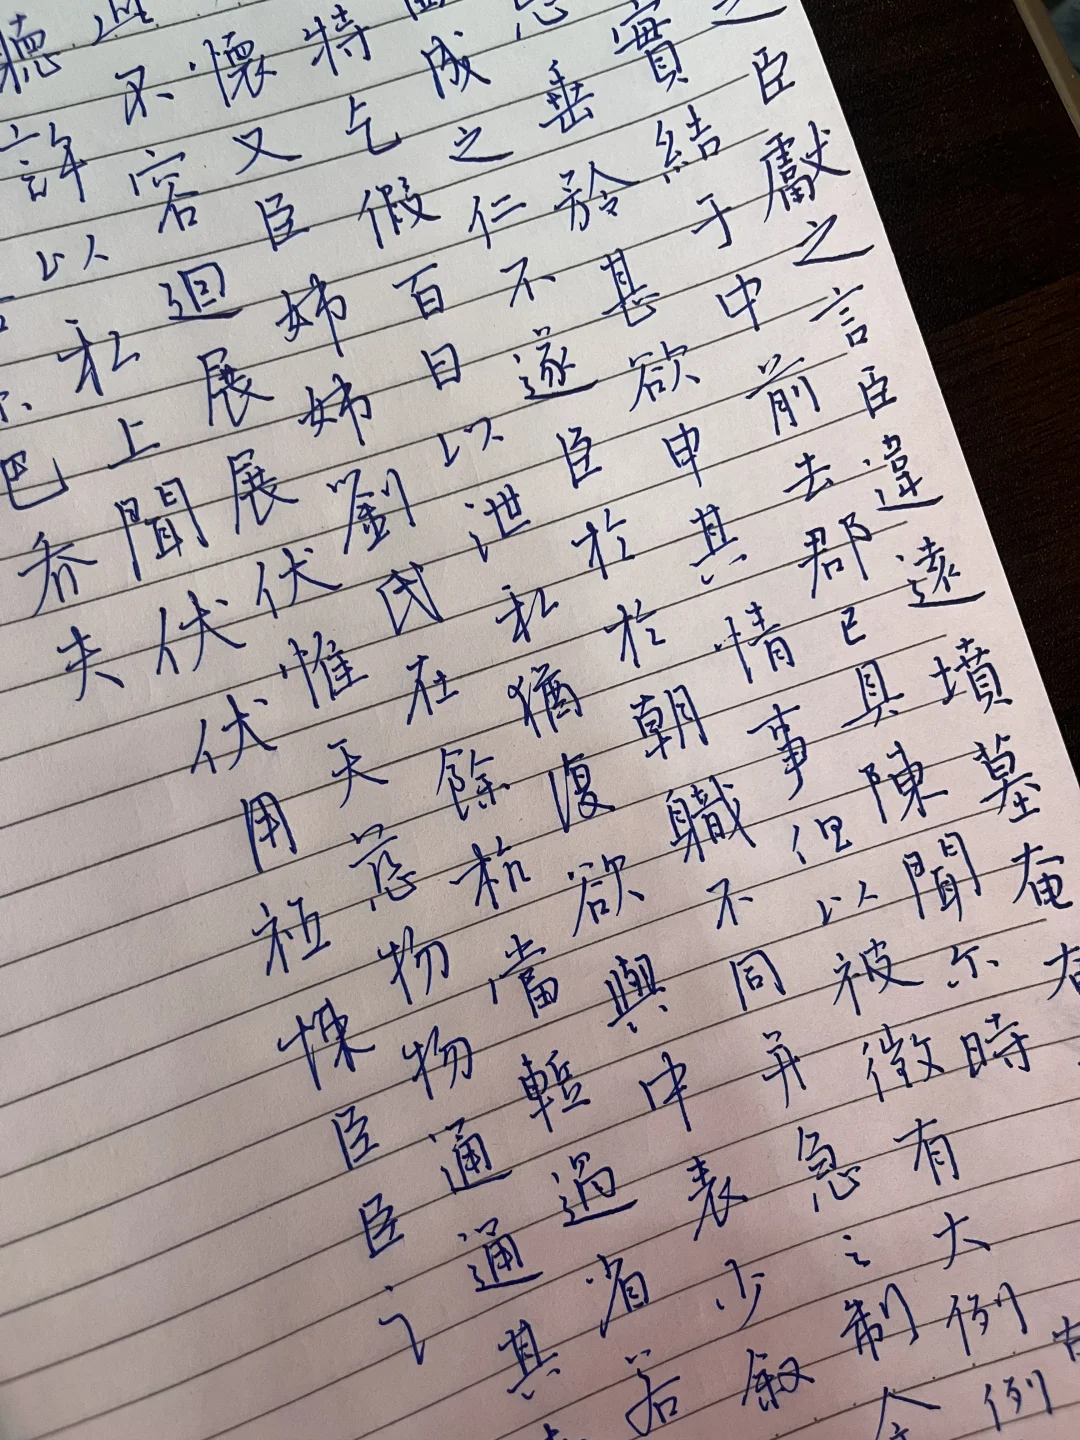 之臣獻之言臣違遠墳墓奄
實結于中前去郡已具陳聞尓時
垂矜甚欲申其情事但以被徵有大例例
成之仁不遂臣於於朝職不同并急之制令
特乞假百日以泄私猶復欲與中表少叙
懷又臣姉姉劉氏在餘杭當暫過省若
不容迴展展伏惟天慈物物通通其
許以私上聞伏伏用祗悚臣臣
夫